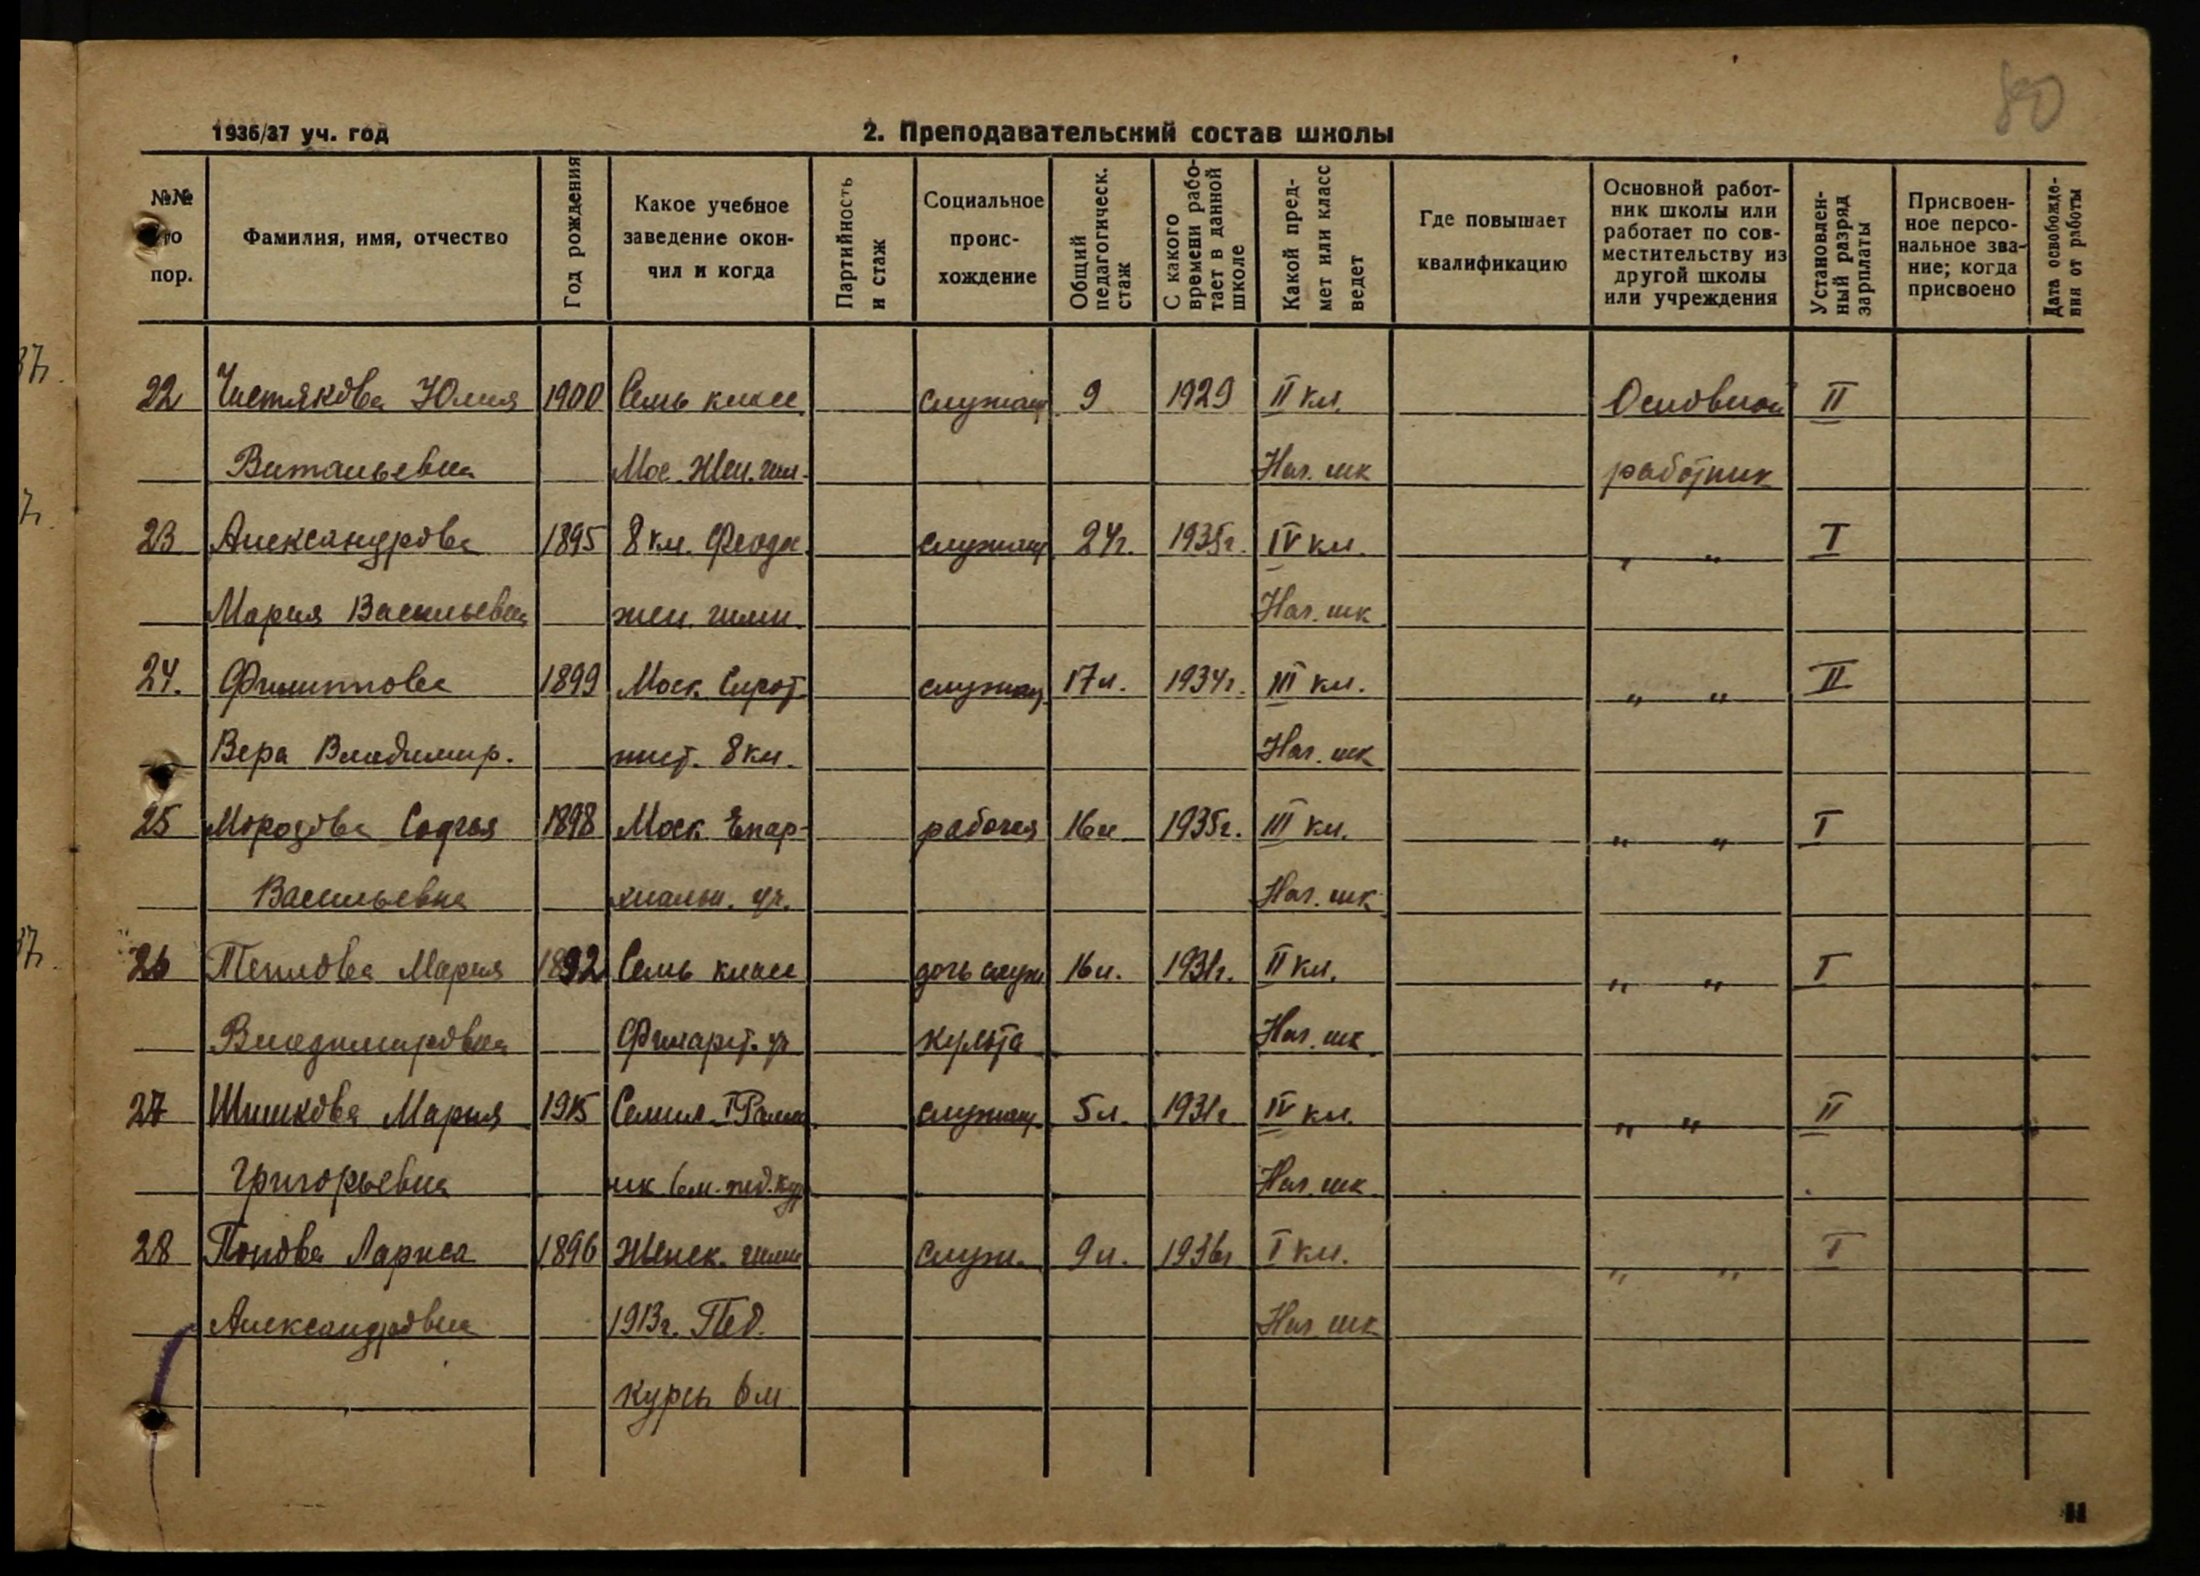 80
1936/37 уч. год
2. Преподавательский состав школы
№№ по пор.
Фамилия, имя, отчество
Год рождения
Какое учебное заведение окончил и когда
Партийность и стаж
Социальное происхождение
Общий педагогическ. стаж
С какого времени работает в данной школе
Какой предмет или класс ведет
Где повышает квалификацию
Основной работник школы или работает по совместительству из другой школы или учреждения
Установленный разряд зарплаты
Присвоенное персональное звание; когда присвоено
Дата освобождения от работы
22 Чистякова Юлия 1900 Семь класс служащ 9 1929 II кл. Основной II
Витальевна Мос. Жен. гим. Нач. шк работник
23 Александрова 1895 8 кл. Феодос. служащ 24г. 1935г. IV кл. " " I
Мария Васильевна жен. гимн. Нач. шк
24. Филиппова 1899 Моск. Сирот. служащ 17л. 1934г. III кл. " " II
Вера Владимир. инст. 8 кл. Нач. шк
25 Морозова Софья 1898 Моск. Епар- рабочая 16л 1935г. III кл. " " I
Васильевна хиальн. уч. Нач. шк
26 Теплова Мария 1892 Семь класс дочь служ 16л. 1931г. II кл. " " I
Владимировна Филарет. уч культа Нач. шк
27 Шишкова Мария 1915 служащ 5л. 1931г IV кл. " " II
Григорьевна 6м. пед. кур Нач. шк
28 Попова Лариса 1896 Женск. гимн служ. 9л. 1936г I кл. " " I
Александровна 1913г. Пед. Нач. шк
курсы 6м
11